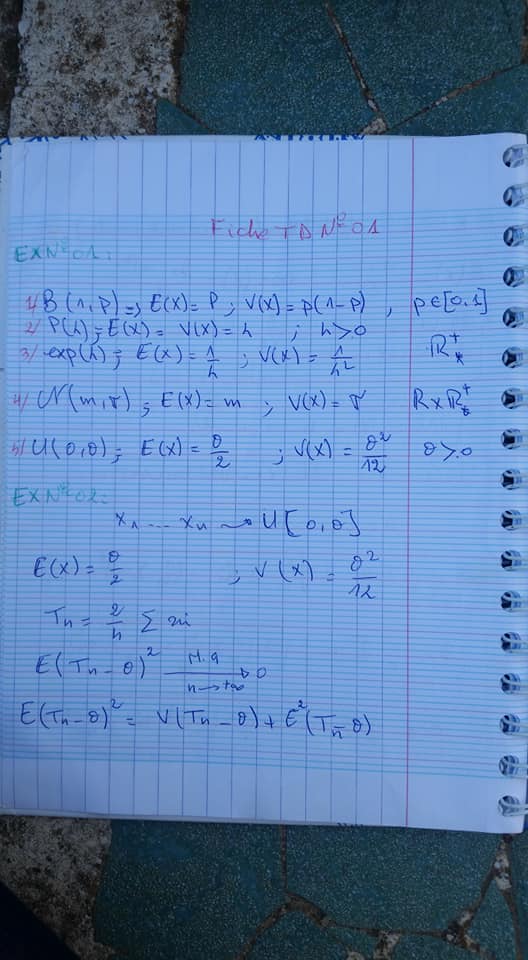 Fiche TD N° 01
EX N° 01:
1/ B(1,p) => E(X) = P ; V(X) = p(1-p) , p∈[0,1]
2/ P(λ) ; E(X) = V(X) = λ ; λ>0
3/ exp(λ) ; E(X) = 1/λ ; V(X) = 1/λ² ℝ*⁺
4/ N(m,σ) ; E(X) = m ; V(X) = σ ℝxℝ*⁺
5/ U(0,θ) ; E(X) = θ/2 ; V(X) = θ²/12 θ>0
EX N° 02:
x₁ .... xₙ ⟶ U[0,θ]
E(X) = θ/2 ; V(X) = θ²/12
Tₙ = 2/n Σ xi
E(Tₙ - θ)² M.q n→+∞ ⟶ 0
E(Tₙ - θ)² = V(Tₙ - θ) + E²(Tₙ - θ)